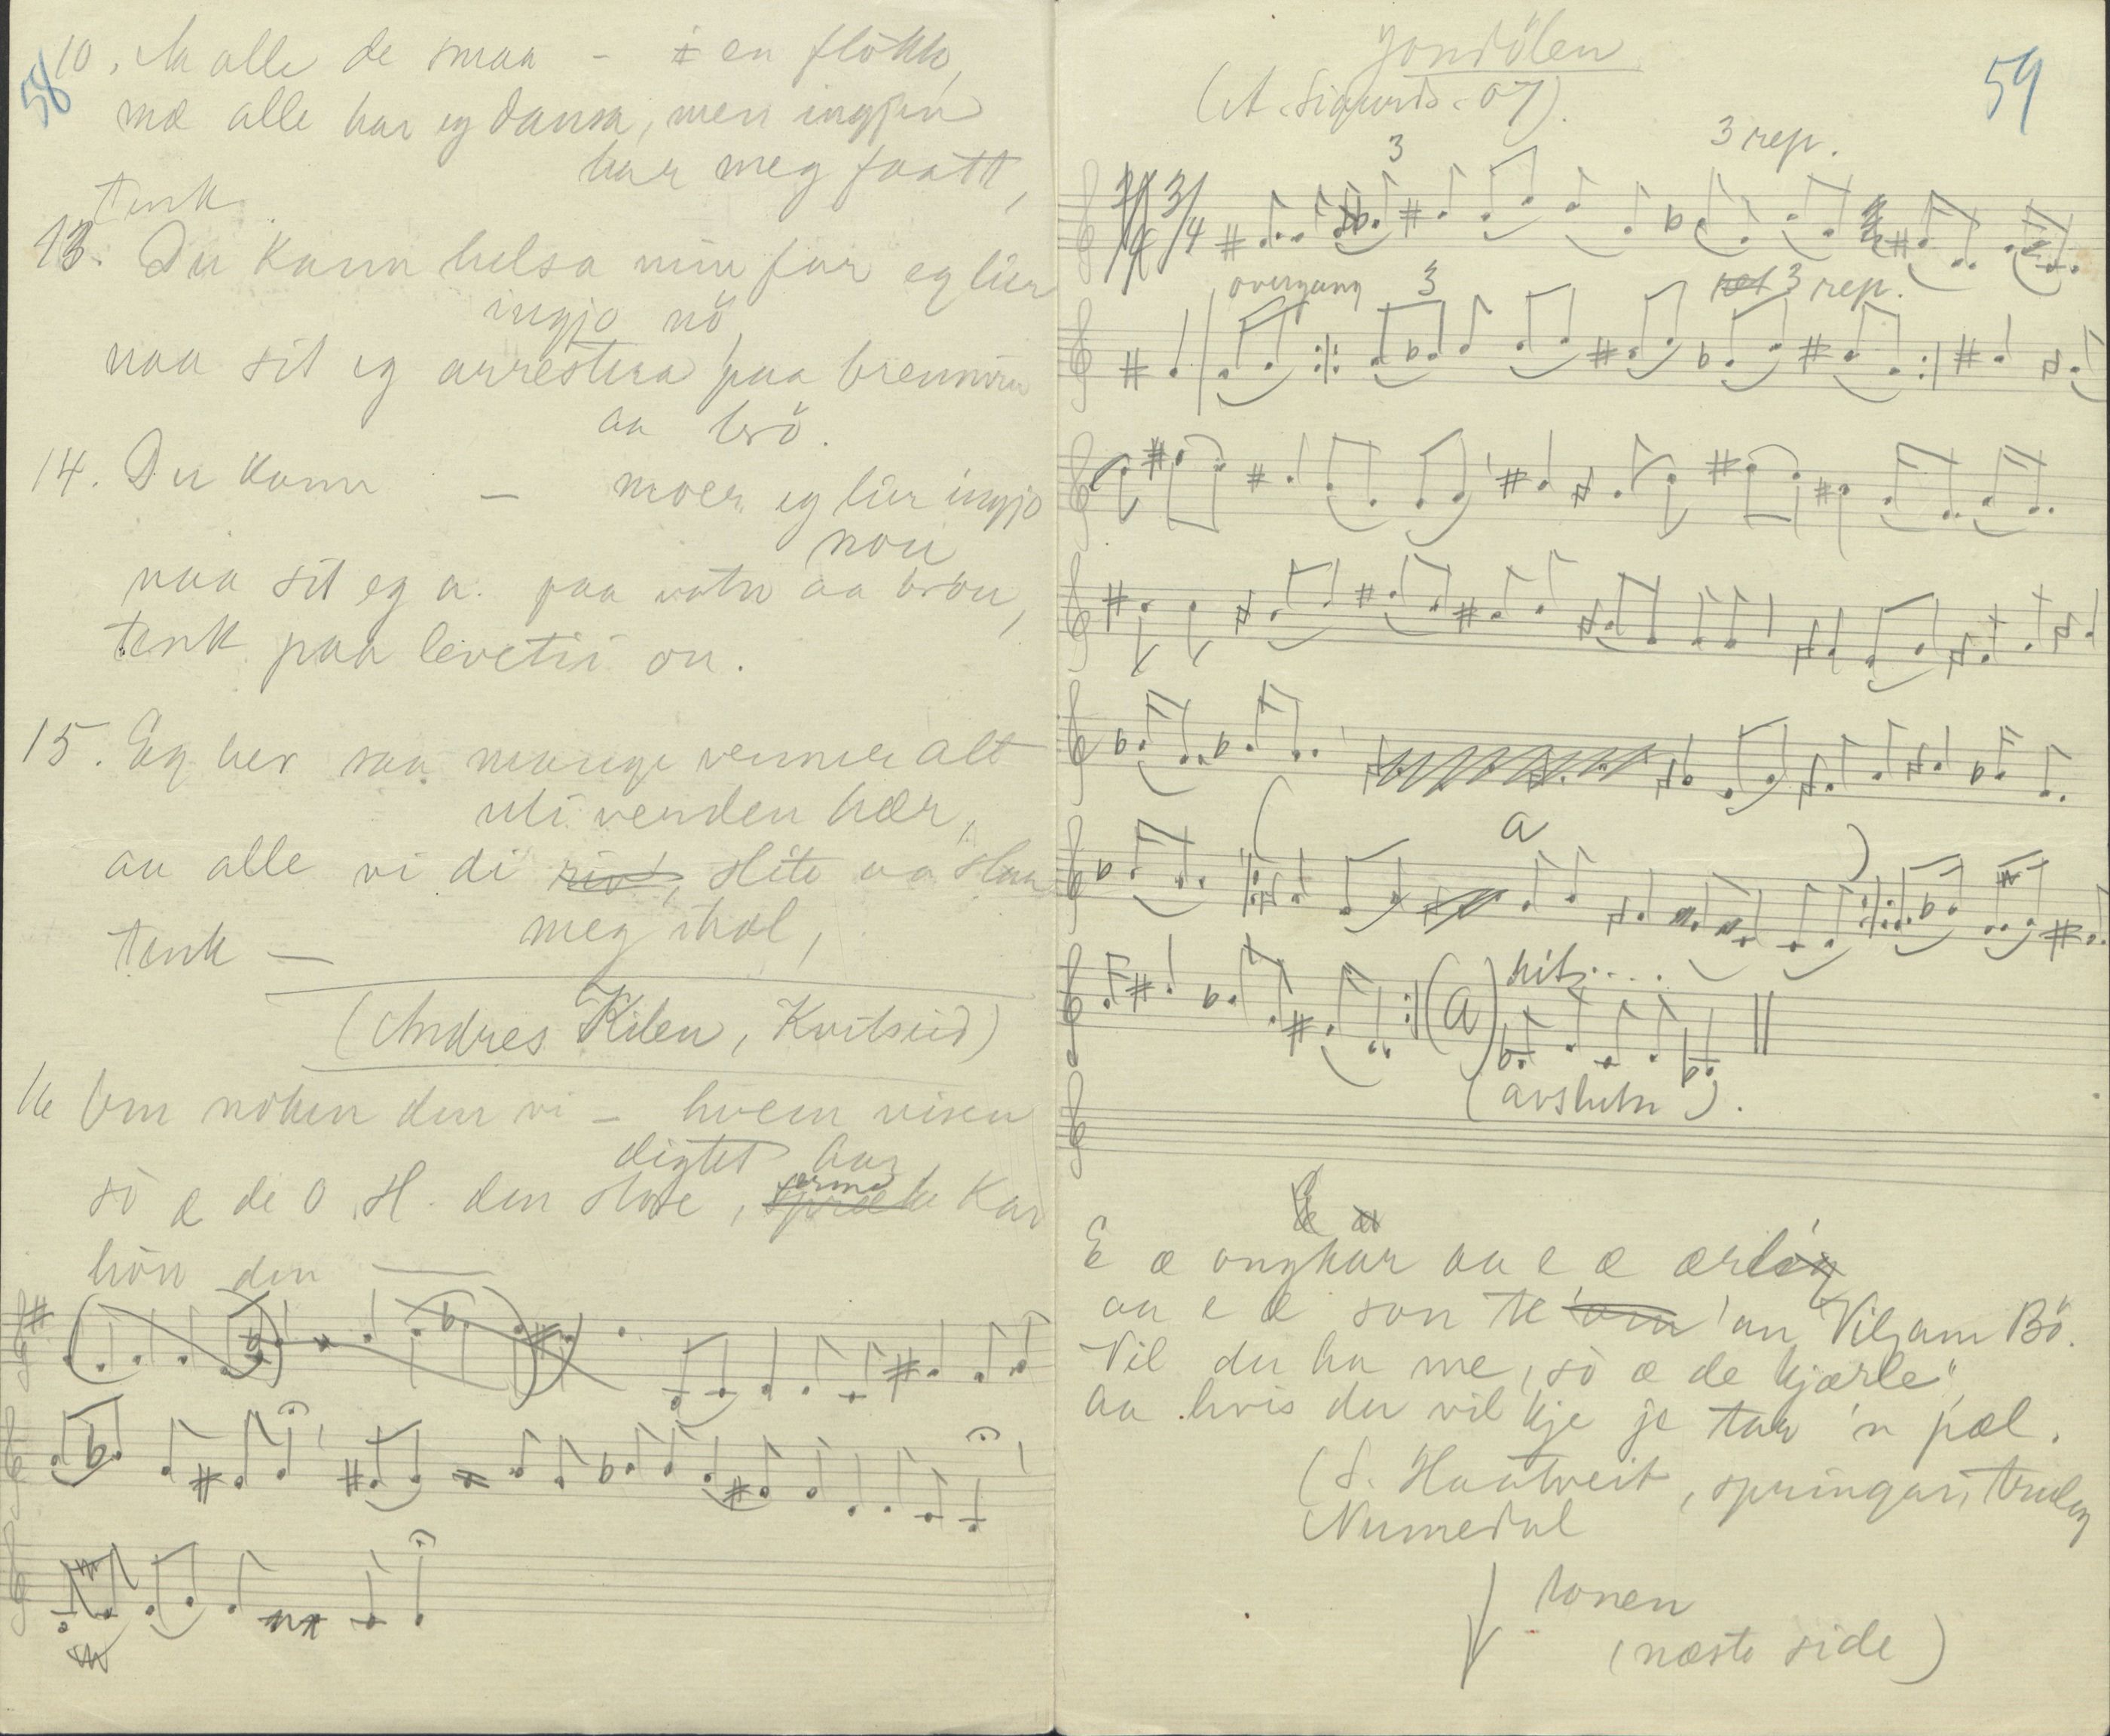 58
10. Aa alle de smaa – i en flokk,
mæ alle har eg dansa, men ingjen
har meg faatt,
tenk
13. Du kann helsa min far eg lier
ingjo nö,
naa sit eg arrestera paa brennvin
aa brö.
14. Du kann – moer, eg lier ingjo
nou
naa sit eg a. paa vatn aa brou,
tenk paa levetii ou.
15. Eg her saa mange venner alt
uti verden hær,
aa alle vi di slite aa slaa
meg ihæl,
tenk —
(Andres Kilen, Kvitseid)
16 Om noken den vi – hvem visen
digtet har
sò æ de O. H. den store, Kar
hòn den —
59
Jondölen
(A. Sigurds. 07).
3
3 rep.
3/4
overgang
3
3 rep.
a
(a)
hit ....
(avslutn).
E æ ongkar aa e æ ærle
aa e æ son te 'an Viljam Bö.
Vil du ha me, sò æ de kjærle",
aa hvis du vil kje je tar 'n pæl.
(S. Haatveit, springar,
Numedal
tonen
(næste side)